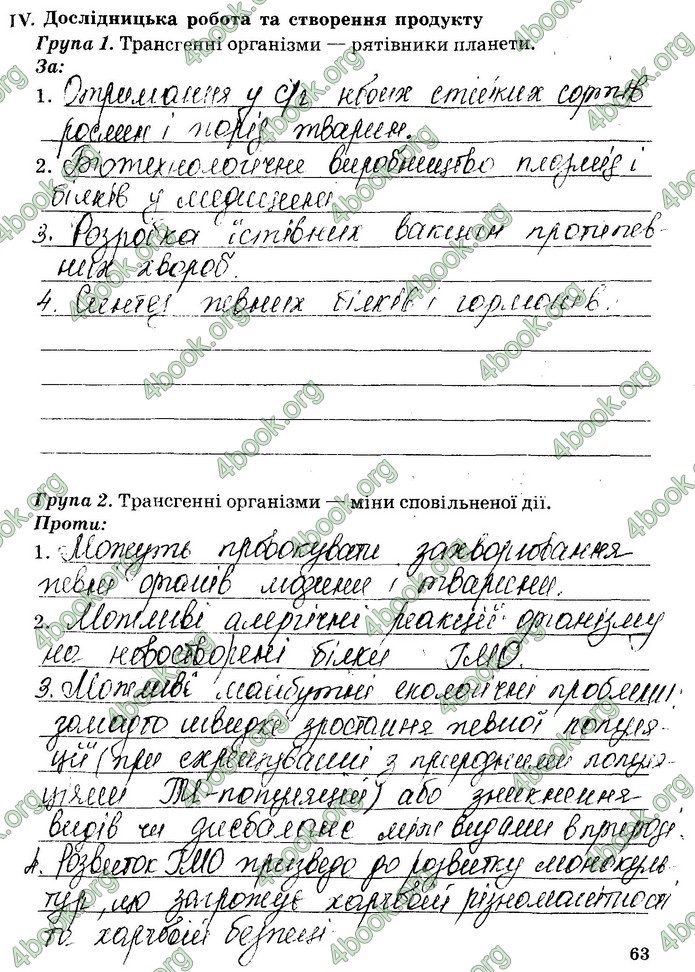 IV. Дослідницька робота та створення продукту
Група 1. Трансгенні організми — рятівники планети.
За:
1. Отримання у с/г нових стійких сортів
рослин і порід тварин.
2. Біотехнологічне виробництво плазмід і
білків у медицині
3. Розробка їстівних вакцин проти пев-
них хвороб.
4. Синтез певних білків і гормонів.
Група 2. Трансгенні організми — міни сповільненої дії.
Проти:
1. Можуть провокувати захворювання
певні органів людини і тварини.
2. Можливі алергічні реакції організму
на новостворені білки ГМО.
3. Можливі майбутні екологічні проблеми:
занадто швидке зростання певної популя-
ції (при схрещуванні з природними попул-
яціями ТІ-популяцій) або зникнення
видів чи дисбаланс між видами в природі.
4. Розвиток ГМО призведе до розвитку монокуль-
тур, що загрожує харчовій різноманітності
та харчовій безпеці
63
4book.org